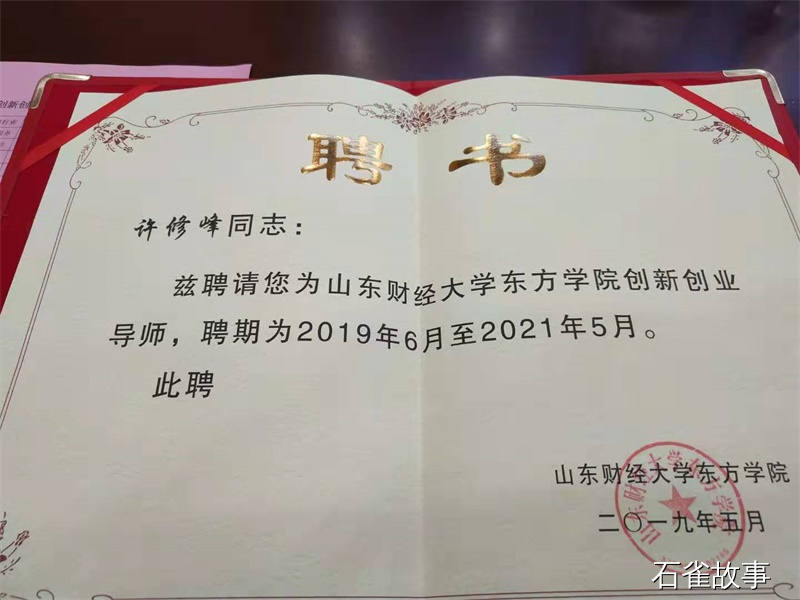 创新创
聘书
许修峰同志：
兹聘请您为山东财经大学东方学院创新创业
导师，聘期为2019年6月至2021年5月。
此聘
山东财经大学东方学院
二〇一九年五月
山东财经大学东方学院
石雀故事